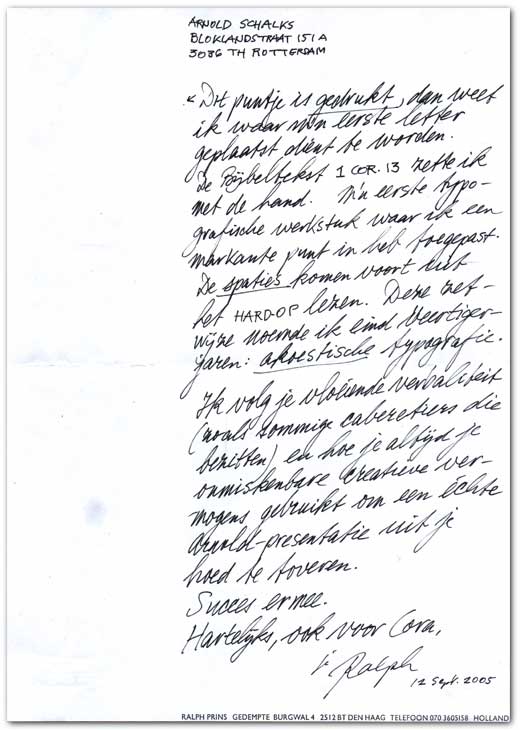 ARNOLD SCHALKS
BLOKLANDSTRAAT 151 A
3036 TH ROTTERDAM
Dit puntje is gedrukt, dan weet
ik waar m'n eerste letter
geplaatst dient te worden.
De Bijbeltekst 1 COR. 13 zette ik
met de hand. M'n eerste typo-
grafische werkstuk waar ik een
markante punt in heb toegepast.
De spaties komen voort uit
het HARD-OP lezen. Deze zet-
wijze noemde ik eind veertiger-
jaren: akoestische typografie.
Ik volg je vloeiende verbaliteit
(zoals sommige cabaretiers die
bezitten) en hoe je altijd je
onmiskenbare creatieve ver-
mogens gebruikt om een échte
Arnold-presentatie uit je
hoed te toveren.
Succes ermee.
Hartelijks, ook voor Cora,
je Ralph
12 Sept. 2005
RALPH PRINS GEDEMPTE BURGWAL 4 2512 BT DEN HAAG TELEFOON 070 3605158 HOLLAND